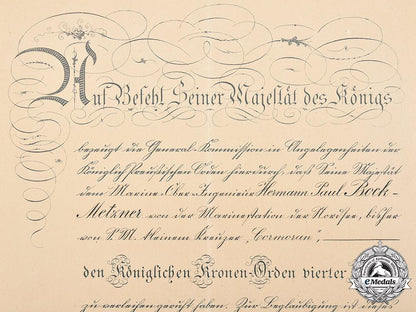 Auf Befehl Seiner Majestät des Königs
bezeugt die General-Kommission in Angelegenheiten der
Königlich Preußischen Orden hierdurch, daß Seine Majestät
dem Marine-Ober-Ingenieur Hermann Paul Bock-
Metzner von der Marinestation der Nordsee, bisher
von S.M. kleinem Kreuzer "Cormoran",
den Königlichen Kronen-Orden vierter
zu verleihen geruht haben. Zur Beglaubigung ist dieses
eMedals